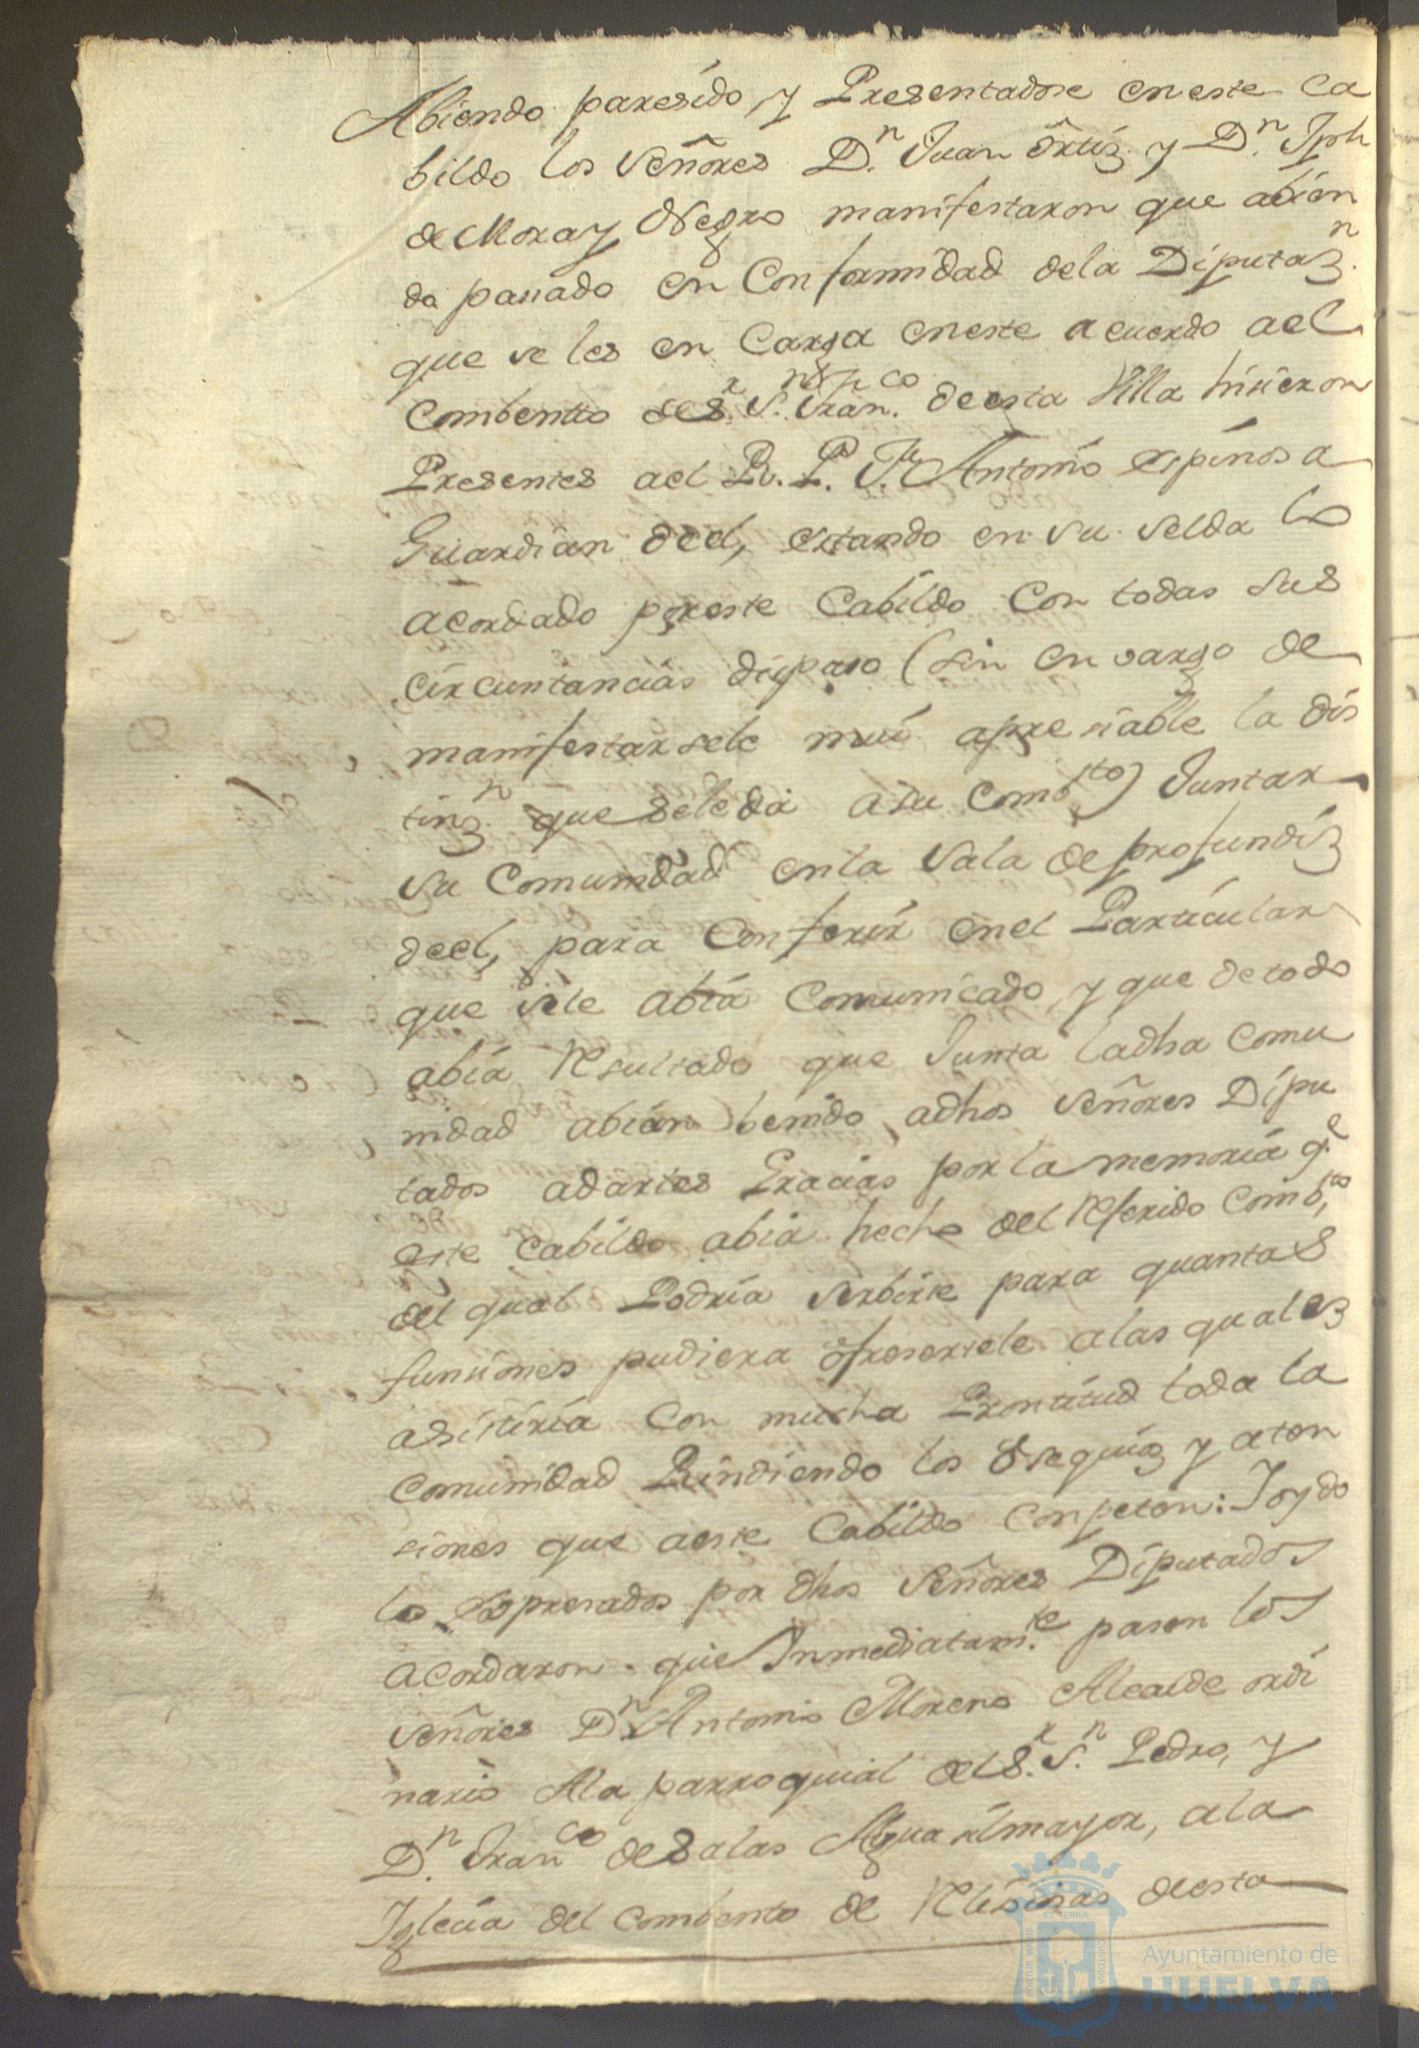 Abiendo paresido, y Presentadose en este Ca
bildo los señores D.n Juan Ortiz y D.n Jph
de Mora y Negro manifestaron que abien
do pasado en Conformidad dela Diputaz.n
que se les en Carga en este acuerdo ael
Combentto del S.r S.n Fran.co de esta Villa hisieron
Presentes ael R. P. Fr. Antonio espinosa
Guardian deel, estando en su selda lo
acordado por este Cabildo Con todas sus
circuntancias dispuso (sin envargo de
manifestarsele mui apresiable la dis
tinz.n que sele da a su Combto) Juntar
su Comunidad en la Sala de profundiz
deel, para Conferir en el Particular
que se le abia Comunicado, y que de todo
abia Resultado que Junta la dha Comu
nidad abian benido, adhos señores Dipu
tados adarles Gracias por la memoria q.e
este Cabildo abia hecho del Referido Comb.to
del qual Podria serbirse para quantas
funsiones pudiera ofreserxele alas quales
asistiria Con mucha Prontitud toda la
Comunidad Rindiendo los Osequioz y aten
siones que aeste Cabildo Conpeten: I oydo
lo Expresados por dhos señores Diputados
acordaron. que Inmediatam.te pasen los
señores D.n Antonio Moreno Alcalde ordi
nario Ala parroquial del S.r S.n Pedro, y
D.n Fran.co de Salas Alguasilmayor, ala
Iglecia del Combento de Relisiosas de esta
ORBIS MARIS
ET TERRÆ
CUSTODIA
Ayuntamiento de
HUELVA